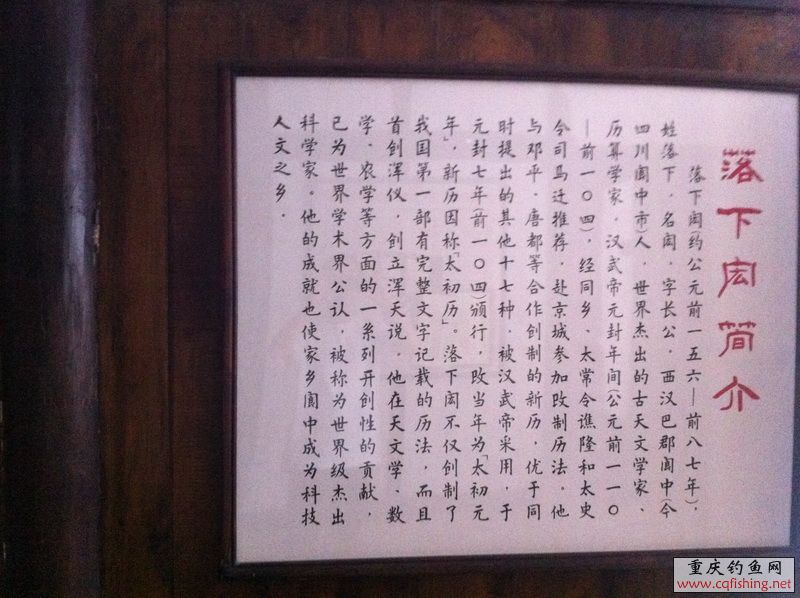 落下闳简介
落下闳(约公元前一五六—前八七年)，
姓落下，名闳，字长公，西汉巴郡阆中(今
四川阆中市)人，世界杰出的古天文学家、
历算学家。汉武帝元封年间(公元前一一〇
—前一〇四)，经同乡、太常令谯隆和太史
令司马迁推荐，赴京城参加改制历法。他
与邓平、唐都等合作创制的新历，优于同
时提出的其他十七种，被汉武帝采用，于
元封七年(前一〇四)颁行，改当年为「太初元
年」，新历因称「太初历」。落下闳不仅创制了
我国第一部有完整文字记载的历法，而且
首创浑仪，创立浑天说。他在天文学、数
学、农学等方面的一系列开创性的贡献，
已为世界学术界公认，被称为世界级杰出
科学家。他的成就也使家乡阆中成为科技
人文之乡。
重庆钓鱼网
www.cqfishing.net